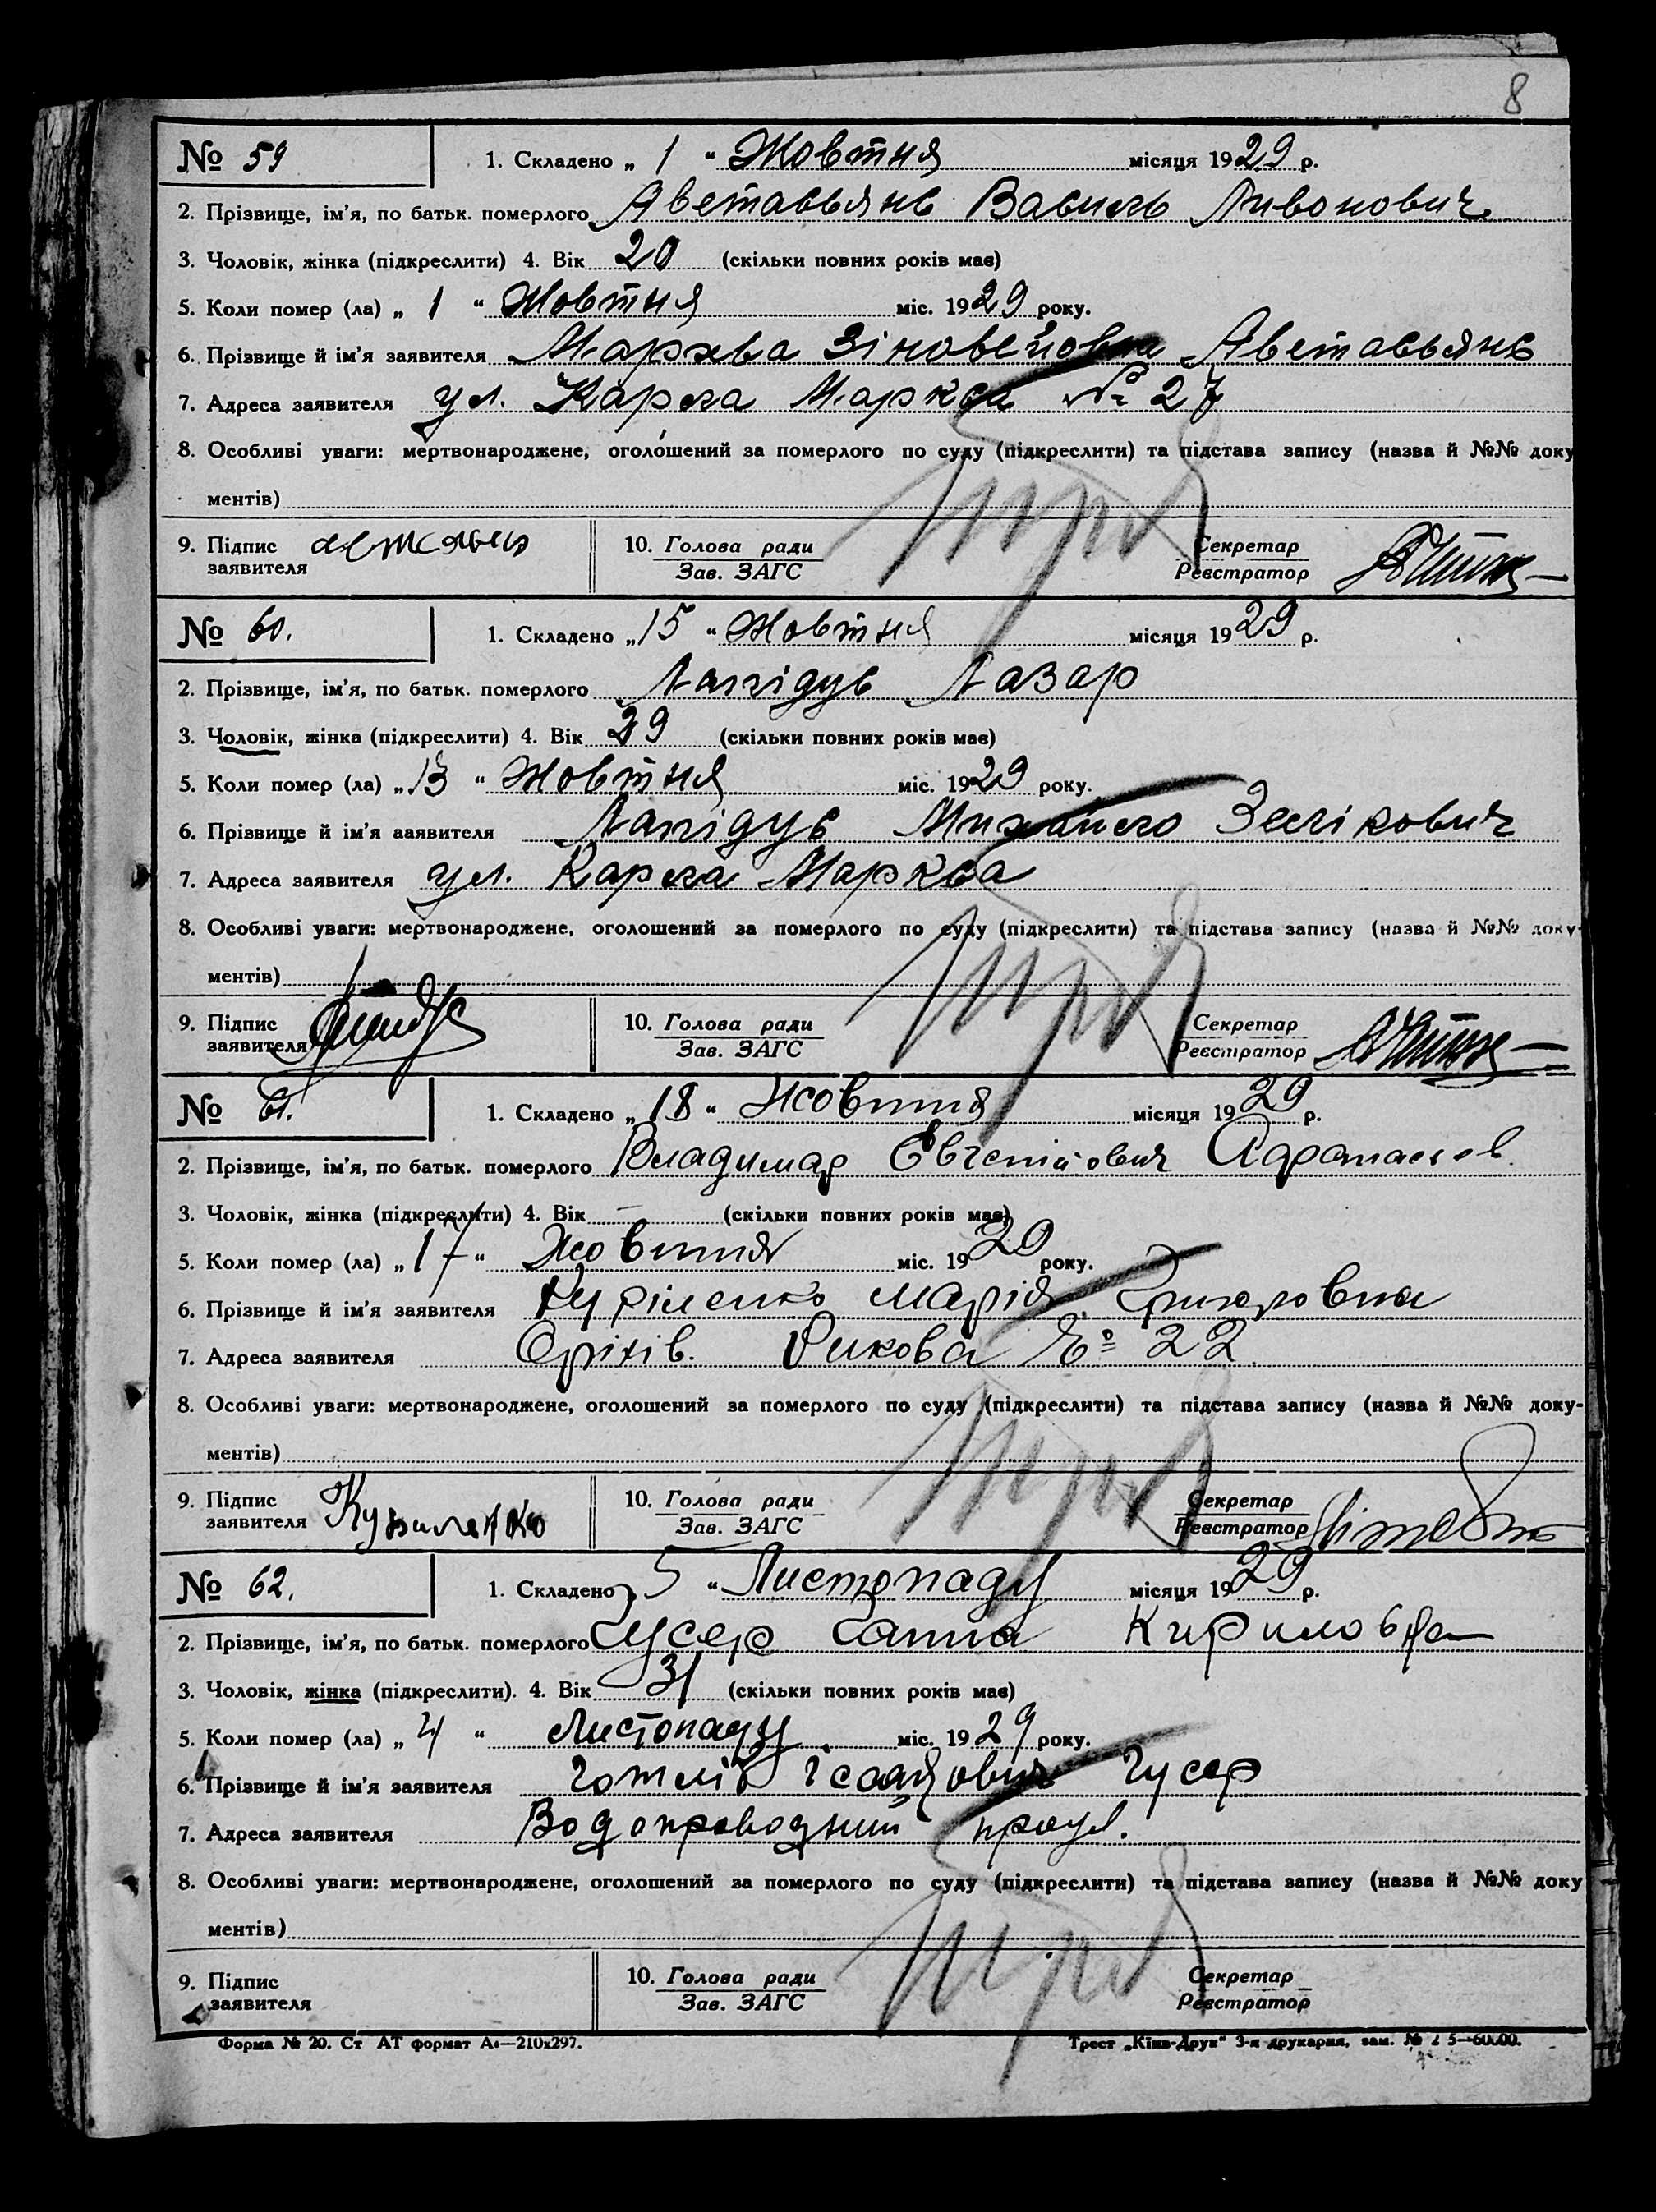 8
№ 59 1. Складено „ 1 “ Жовтня місяця 1929 р.
2. Прізвище, ім'я, по батьк. померлого Аветавьянс Василь Ливонович
3. Чоловік, жінка (підкреслити) 4. Вік 20 (скільки повних років має)
5. Коли помер (ла) „ 1 “ Жовтня міс. 1929 року.
6. Прізвище й ім'я заявителя Зіновейовна Аветавьянс
7. Адреса заявителя ул. Карла Маркса № 27
8. Особливі уваги: мертвонароджене, оголошений за померлого по суду (підкреслити) та підстава запису (назва й №№ доку
ментів)
9. Підпис 10. Голова ради Секретар
заявителя Зав. ЗАГС Реєстратор
№ 60. 1. Складено „ 15 “ Жовтня місяця 1929 р.
2. Прізвище, ім'я, по батьк. померлого Лапідус Лазар
3. Чоловік, жінка (підкреслити) 4. Вік 29 (скільки повних років має)
5. Коли помер (ла) „ 13 “ Жовтня міс. 1929 року.
6. Прізвище й ім'я заявителя Лапідус Михайло Зелікович
7. Адреса заявителя ул. Карла Маркса
8. Особливі уваги: мертвонароджене, оголошений за померлого по суду (підкреслити) та підстава запису (назва й №№ доку-
ментів)
9. Підпис 10. Голова ради Секретар
заявителя Зав. ЗАГС Реєстратор
№ 61. 1. Складено „ 18 “ Жовтня місяця 1929 р.
2. Прізвище, ім'я, по батьк. померлого Владимар Евгенійович
3. Чоловік, жінка (підкреслити) 4. Вік — (скільки повних років має)
5. Коли помер (ла) „ 17 “ Жовтня міс. 1929 року.
6. Прізвище й ім'я заявителя Куріленко Марія
7. Адреса заявителя Оріхів. Рикова № 22.
8. Особливі уваги: мертвонароджене, оголошений за померлого по суду (підкреслити) та підстава запису (назва й №№ доку-
ментів)
9. Підпис 10. Голова ради Секретар
заявителя Зав. ЗАГС Реєстратор
№ 62. 1. Складено „ 5 “ Листопаду місяця 1929 р.
2. Прізвище, ім'я, по батьк. померлого Гусер Ганна Кириловна
3. Чоловік, жінка (підкреслити). 4. Вік 31 (скільки повних років має)
5. Коли помер (ла) „ 4 “ Листопаду міс. 1929 року.
6. Прізвище й ім'я заявителя Готліб Гусер
7. Адреса заявителя Водопроводний проул.
8. Особливі уваги: мертвонароджене, оголошений за померлого по суду (підкреслити) та підстава запису (назва й №№ доку
ментів)
9. Підпис 10. Голова ради Секретар
заявителя Зав. ЗАГС Реєстратор
Форма № 20. Ст АТ формат А4—210х297. Трест „Київ-Друк“ 3-я друкарня, зам. №